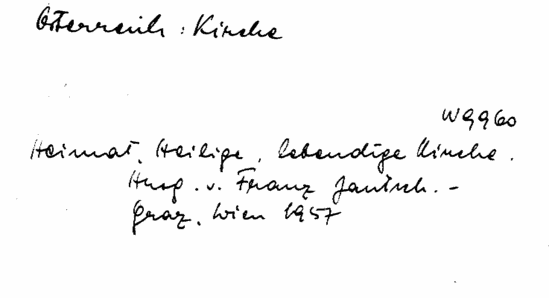 Österreich : Kirche
W9960
Heimat, Heilige, lebendige Kirche.
Hrsg. v. Franz Jantsch. –
Graz, Wien 1957